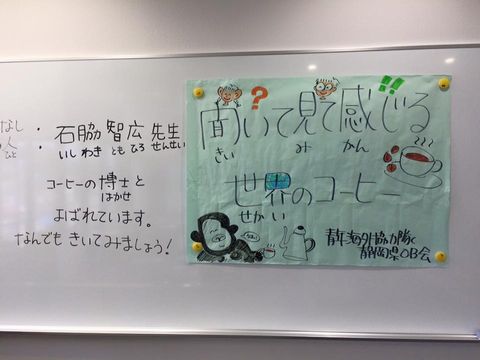 なし
人
ひと
: 石脇 智広 先生
いし わき とも ひろ せんせい
コーヒーの博士と
はかせ
よばれています。
なんでも きいてみましょう!
?
!!
聞いて見て感じる
き い み かん
世界のコーヒー
せかい
青年海外協力隊
静岡県OB会